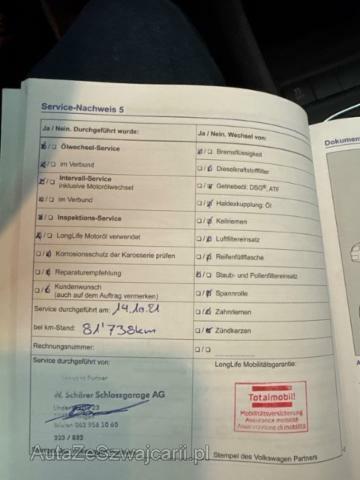 Service-Nachweis 5
Ja / Nein. Durchgeführt wurde:
Ölwechsel-Service
im Verbund
Intervall-Service
inklusive Motorölwechsel
im Verbund
Inspektions-Service
LongLife Motoröl verwendet
Korrosionsschutz der Karosserie prüfen
Reparaturempfehlung
Kundenwunsch
(auch auf dem Auftrag vermerken)
Service durchgeführt am: 14.10.21
bei km-Stand: 81'738km
Rechnungsnummer:
Service durchgeführt von:
W. Schärer Schlossgarage AG
Telefon 062
223 /
Ja / Nein. Wechsel von:
Bremsflüssigkeit
Dieselkraftstofffilter
Getriebeöl: DSG®, ATF
Haldexkupplung: Öl
Keilriemen
Luftfiltereinsatz
Reifenfüllflasche
Staub- und Pollenfiltereinsatz
Spannrolle
Zahnriemen
Zündkerzen
LongLife Mobilitätsgarantie:
Totalmobil!
Mobilitätsversicherung
Assurance mobilité
Assicurazione di mobilità
Stempel des Volkswagen Partners
Dokument
AutaZeSzwajcarii.pl